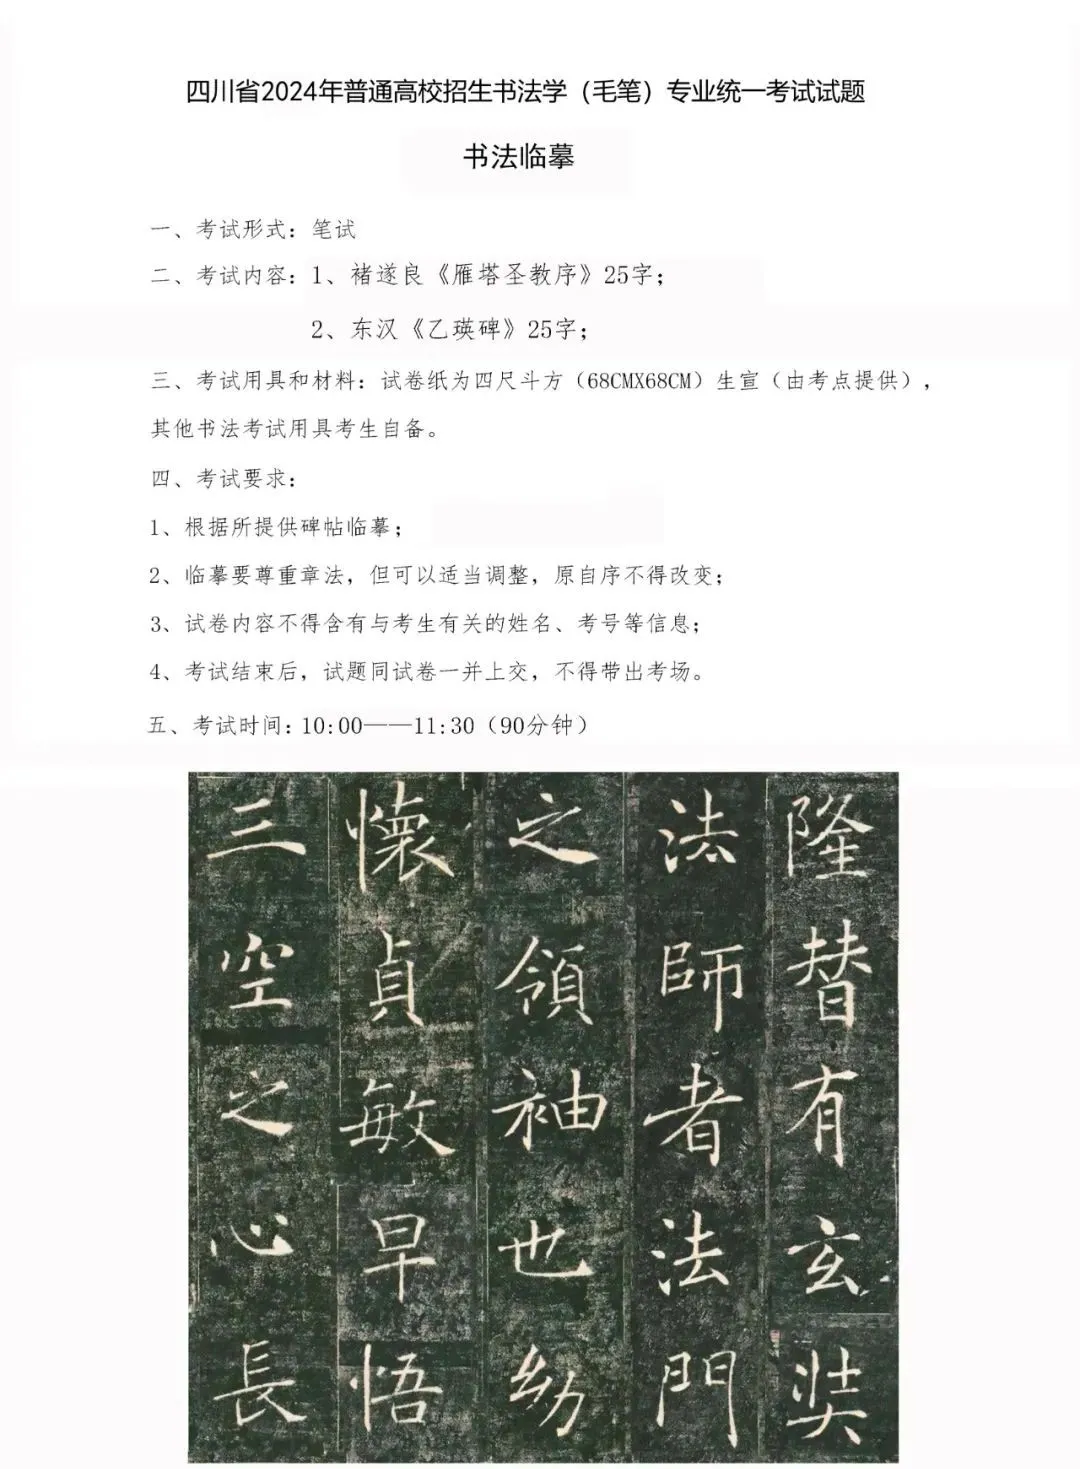 四川省2024年普通高校招生书法学（毛笔）专业统一考试试题
书法临摹
一、考试形式：笔试
二、考试内容：1、褚遂良《雁塔圣教序》25字；
2、东汉《乙瑛碑》25字；
三、考试用具和材料：试卷纸为四尺斗方（68CMX68CM）生宣（由考点提供），
其他书法考试用具考生自备。
四、考试要求：
1、根据所提供碑帖临摹；
2、临摹要尊重章法，但可以适当调整，原自序不得改变；
3、试卷内容不得含有与考生有关的姓名、考号等信息；
4、考试结束后，试题同试卷一并上交，不得带出考场。
五、考试时间：10:00——11:30（90分钟）
隆替有玄奘
法師者法門
之領袖也幼
懷貞敏早悟
三空之心長